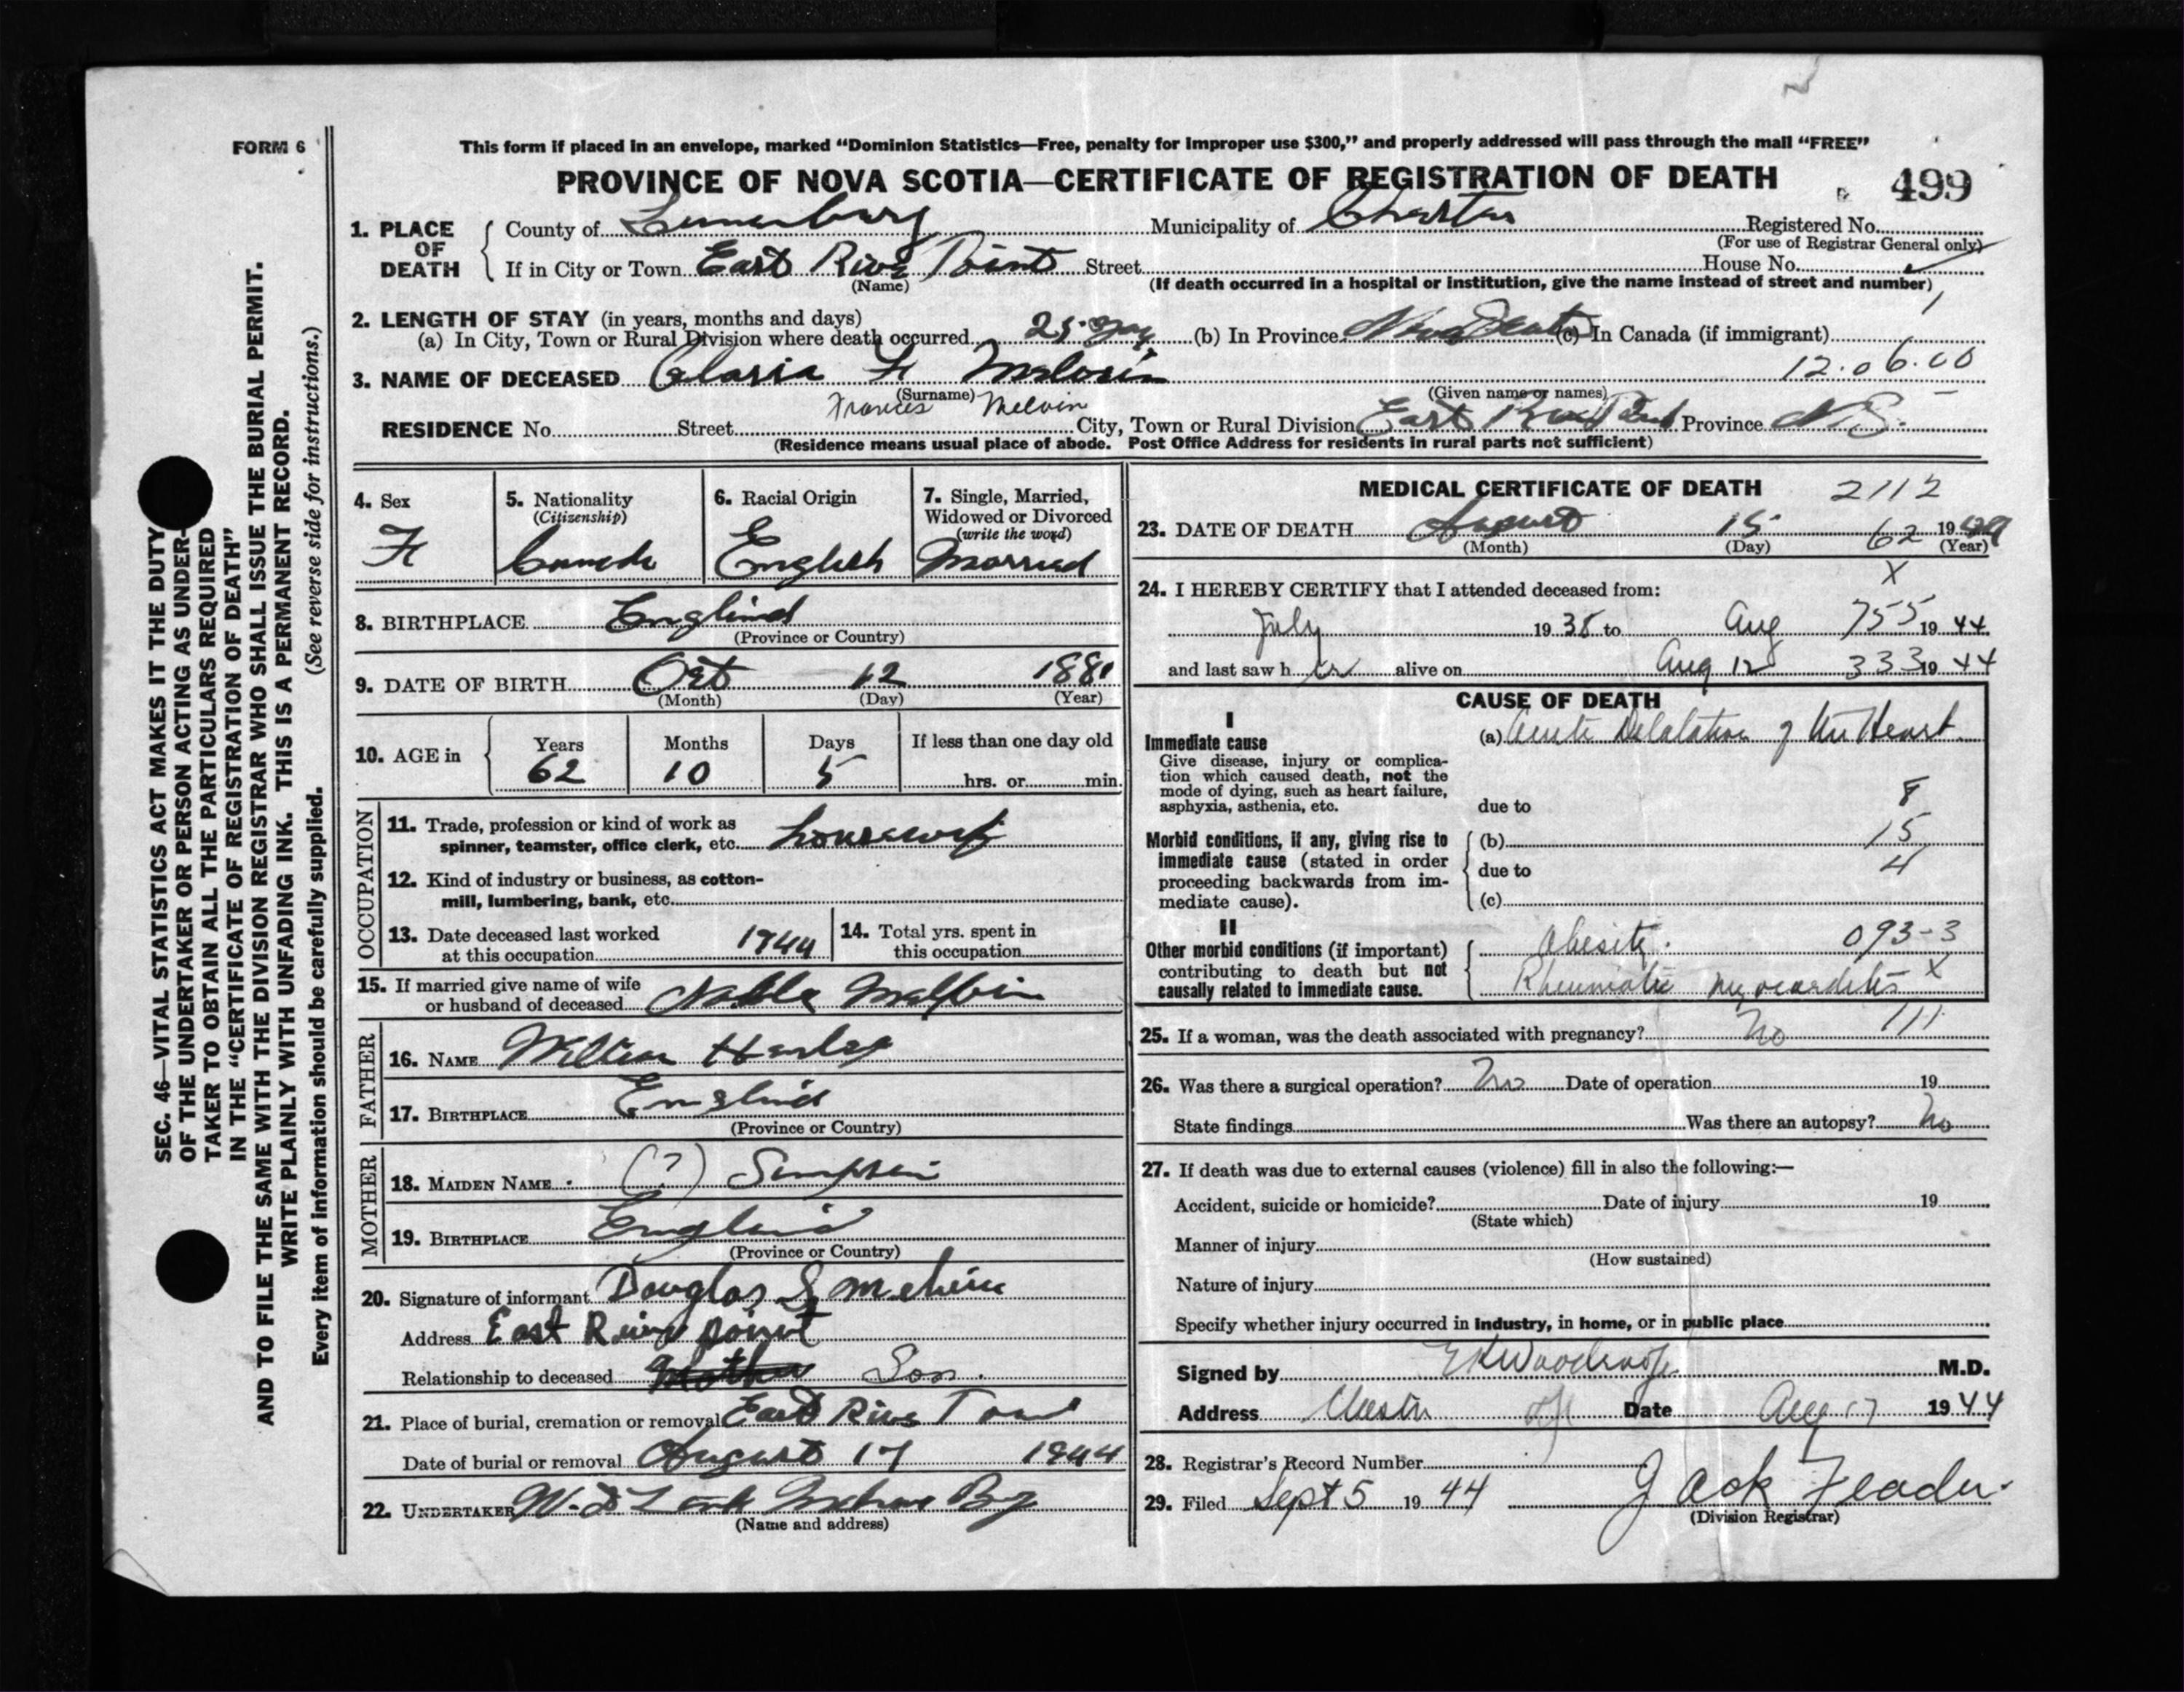 FORM 6
This form if placed in an envelope, marked "Dominion Statistics—Free, penalty for improper use $300," and properly addressed will pass through the mail "FREE"
PROVINCE OF NOVA SCOTIA—CERTIFICATE OF REGISTRATION OF DEATH
499
1. PLACE OF DEATH
County of Lunenburg Municipality of Chester Registered No.
(For use of Registrar General only)
If in City or Town East River Point Street House No.
(Name) (If death occurred in a hospital or institution, give the name instead of street and number)
2. LENGTH OF STAY (in years, months and days)
(a) In City, Town or Rural Division where death occurred 25 (b) In Province Nova Scotia (c) In Canada (if immigrant)
3. NAME OF DECEASED F 12.06.00
(Surname) (Given name or names)
Frances Melvin
RESIDENCE No. Street City, Town or Rural Division East River Point Province N.S.
(Residence means usual place of abode. Post Office Address for residents in rural parts not sufficient)
4. Sex
F
5. Nationality
(Citizenship)
Canada
6. Racial Origin
English
7. Single, Married, Widowed or Divorced
(write the word)
Married
8. BIRTHPLACE England
(Province or Country)
9. DATE OF BIRTH Oct 12 1881
(Month) (Day) (Year)
10. AGE in
Years Months Days If less than one day old
62 10 5 hrs. or min.
OCCUPATION
11. Trade, profession or kind of work as
spinner, teamster, office clerk, etc. housewife
12. Kind of industry or business, as cotton-
mill, lumbering, bank, etc.
13. Date deceased last worked
at this occupation 1944
14. Total yrs. spent in
this occupation
15. If married give name of wife
or husband of deceased
FATHER
16. NAME William
17. BIRTHPLACE England
(Province or Country)
MOTHER
18. MAIDEN NAME (?) Simpson
19. BIRTHPLACE England
(Province or Country)
20. Signature of informant Douglas S Melvin
Address East River point
Relationship to deceased Mother Son.
21. Place of burial, cremation or removal East River Point
Date of burial or removal August 17 1944
22. UNDERTAKER
(Name and address)
MEDICAL CERTIFICATE OF DEATH 2112
23. DATE OF DEATH August 15 62 1944
(Month) (Day) (Year)
24. I HEREBY CERTIFY that I attended deceased from: X
July 1938 to Aug 755 1944
and last saw her alive on Aug 12 333 1944
CAUSE OF DEATH
I
Immediate cause
Give disease, injury or complica-
tion which caused death, not the
mode of dying, such as heart failure,
asphyxia, asthenia, etc.
(a) Acute Dilatation of the Heart
due to 8
Morbid conditions, if any, giving rise to
immediate cause (stated in order
proceeding backwards from im-
mediate cause).
(b) 15
due to 4
(c)
II
Other morbid conditions (if important)
contributing to death but not
causally related to immediate cause.
Obesity. 093-3
Rheumatic myocarditis X
25. If a woman, was the death associated with pregnancy? No 111
26. Was there a surgical operation? No Date of operation 19
State findings Was there an autopsy? No
27. If death was due to external causes (violence) fill in also the following:—
Accident, suicide or homicide? Date of injury 19
(State which)
Manner of injury
(How sustained)
Nature of injury
Specify whether injury occurred in industry, in home, or in public place
Signed by M.D.
Address Chester Date Aug 17 1944
28. Registrar's Record Number
29. Filed Sept 5 1944 Jack
(Division Registrar)
SEC. 46—VITAL STATISTICS ACT MAKES IT THE DUTY
OF THE UNDERTAKER OR PERSON ACTING AS UNDER-
TAKER TO OBTAIN ALL THE PARTICULARS REQUIRED
IN THE "CERTIFICATE OF REGISTRATION OF DEATH"
AND TO FILE THE SAME WITH THE DIVISION REGISTRAR WHO SHALL ISSUE THE BURIAL PERMIT.
WRITE PLAINLY WITH UNFADING INK. THIS IS A PERMANENT RECORD.
Every item of information should be carefully supplied. (See reverse side for instructions.)